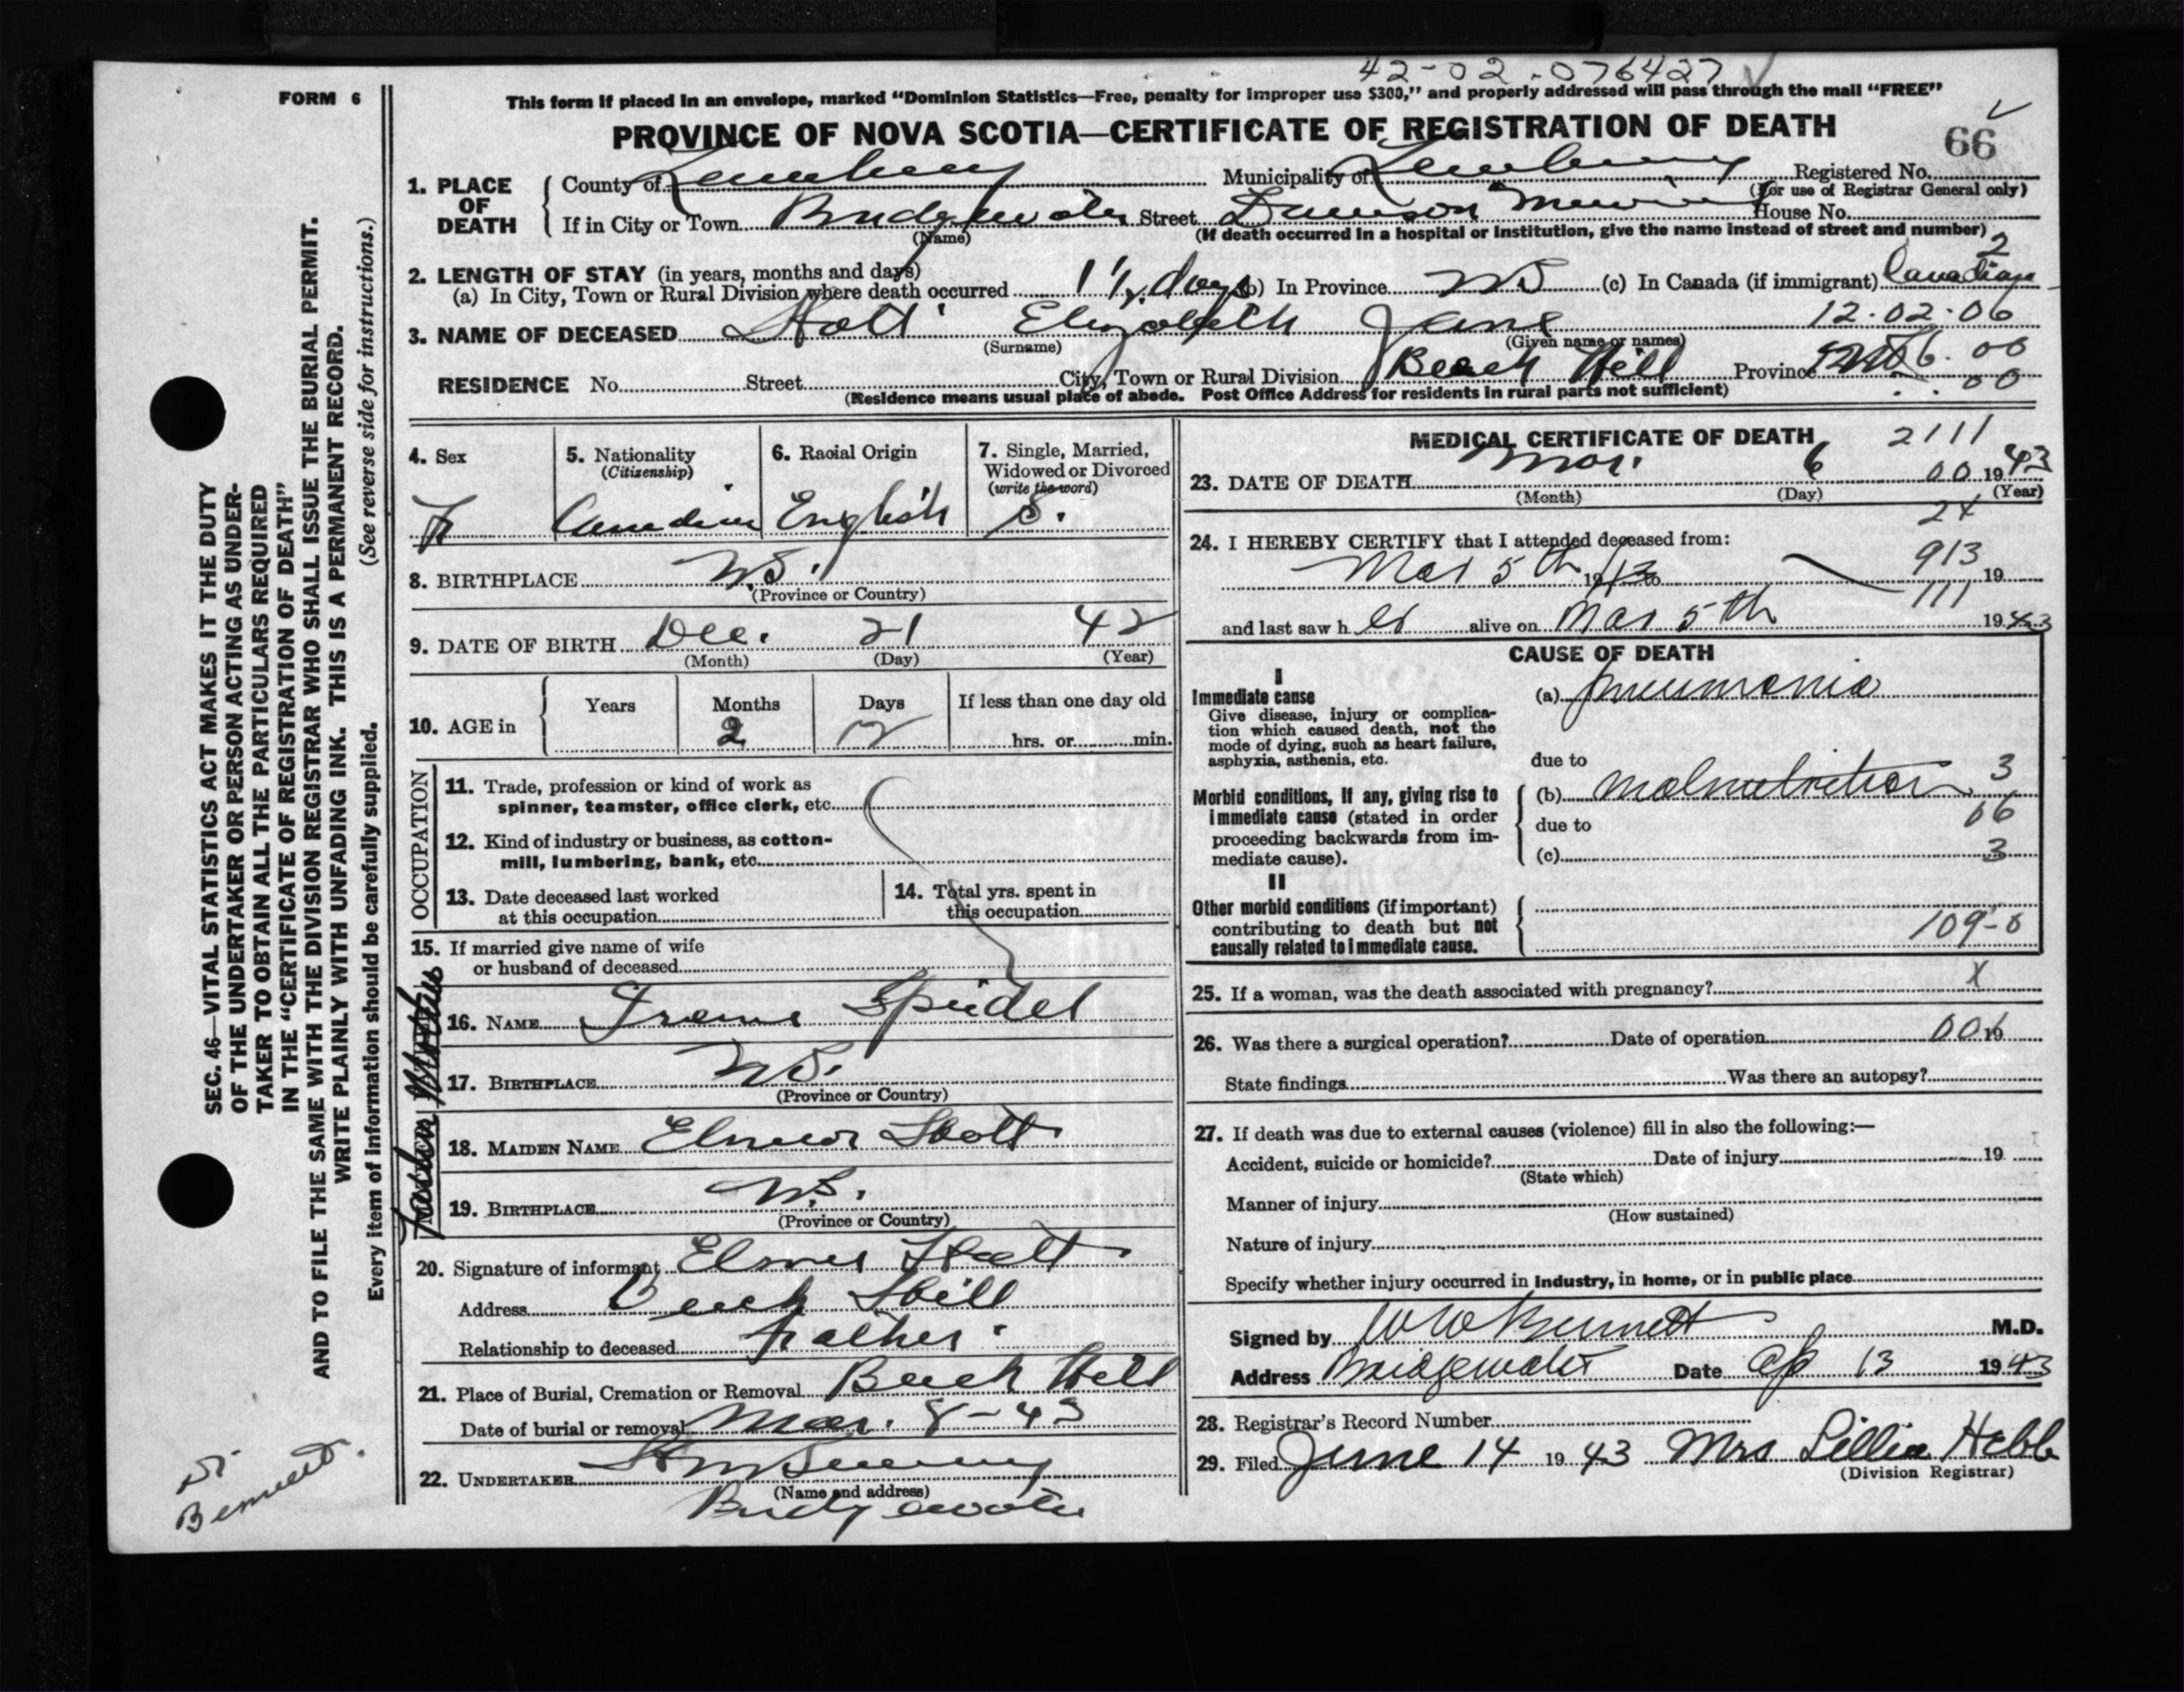 42-02-076427
FORM 6
This form if placed in an envelope, marked "Dominion Statistics—Free, penalty for improper use $300," and properly addressed will pass through the mail "FREE"
PROVINCE OF NOVA SCOTIA—CERTIFICATE OF REGISTRATION OF DEATH
66
1. PLACE OF DEATH
County of Lunenburg Municipality of Lunenburg Registered No.
(For use of Registrar General only)
If in City or Town Bridgewater Street Dawson House No.
(Name) (If death occurred in a hospital or institution, give the name instead of street and number)
2
2. LENGTH OF STAY (in years, months and days)
(a) In City, Town or Rural Division where death occurred 1½ days (b) In Province NS (c) In Canada (if immigrant) Canadian
3. NAME OF DECEASED Holt Elizabeth Jane 12-02-06
(Surname) (Given name or names)
RESIDENCE No. Street City, Town or Rural Division Beach Hill Province 6.00
. . 00
(Residence means usual place of abode. Post Office Address for residents in rural parts not sufficient)
4. Sex F
5. Nationality (Citizenship) Canadian
6. Racial Origin English
7. Single, Married, Widowed or Divorced (write the word) S.
8. BIRTHPLACE N.S.
(Province or Country)
9. DATE OF BIRTH Dec. 21 42
(Month) (Day) (Year)
10. AGE in
Years Months Days If less than one day old
2 12 hrs. or min.
OCCUPATION
11. Trade, profession or kind of work as
spinner, teamster, office clerk, etc.
12. Kind of industry or business, as cotton-
mill, lumbering, bank, etc.
13. Date deceased last worked
at this occupation
14. Total yrs. spent in
this occupation
15. If married give name of wife
or husband of deceased
Mother
16. NAME Irene Speidel
17. BIRTHPLACE N.S.
(Province or Country)
Father
18. MAIDEN NAME Elmer Holt
19. BIRTHPLACE N.S.
(Province or Country)
20. Signature of informant Elmer Holt
Address Beach Hill
Relationship to deceased Father
21. Place of Burial, Cremation or Removal Beach Hill
Date of burial or removal Mar. 8-43
22. UNDERTAKER
(Name and address)
Bridgewater
MEDICAL CERTIFICATE OF DEATH
2111
23. DATE OF DEATH Mar. 6 00 1943
(Month) (Day) (Year)
2x
24. I HEREBY CERTIFY that I attended deceased from:
913
Mar 5th 1943 to 19
111
and last saw her alive on Mar 5th 1943
CAUSE OF DEATH
I
Immediate cause
Give disease, injury or complica-
tion which caused death, not the
mode of dying, such as heart failure,
asphyxia, asthenia, etc.
(a) Pneumonia
due to
Morbid conditions, if any, giving rise to
immediate cause (stated in order
proceeding backwards from im-
mediate cause).
(b) Malnutrition 3
due to 06
(c) 3
II
Other morbid conditions (if important)
contributing to death but not
causally related to immediate cause.
109-0
25. If a woman, was the death associated with pregnancy? X
26. Was there a surgical operation? Date of operation 001 19
State findings Was there an autopsy?
27. If death was due to external causes (violence) fill in also the following:—
Accident, suicide or homicide? Date of injury 19
(State which)
Manner of injury
(How sustained)
Nature of injury
Specify whether injury occurred in industry, in home, or in public place
Signed by W W Bennett M.D.
Address Bridgewater Date Ap 13 1943
28. Registrar's Record Number
29. Filed June 14 1943 Mrs Lillia Hebb
(Division Registrar)
SEC. 46—VITAL STATISTICS ACT MAKES IT THE DUTY
OF THE UNDERTAKER OR PERSON ACTING AS UNDER-
TAKER TO OBTAIN ALL THE PARTICULARS REQUIRED
IN THE "CERTIFICATE OF REGISTRATION OF DEATH"
AND TO FILE THE SAME WITH THE DIVISION REGISTRAR WHO SHALL ISSUE THE BURIAL PERMIT.
WRITE PLAINLY WITH UNFADING INK. THIS IS A PERMANENT RECORD.
(See reverse side for instructions.)
Every item of information should be carefully supplied.
Dr
Bennett.